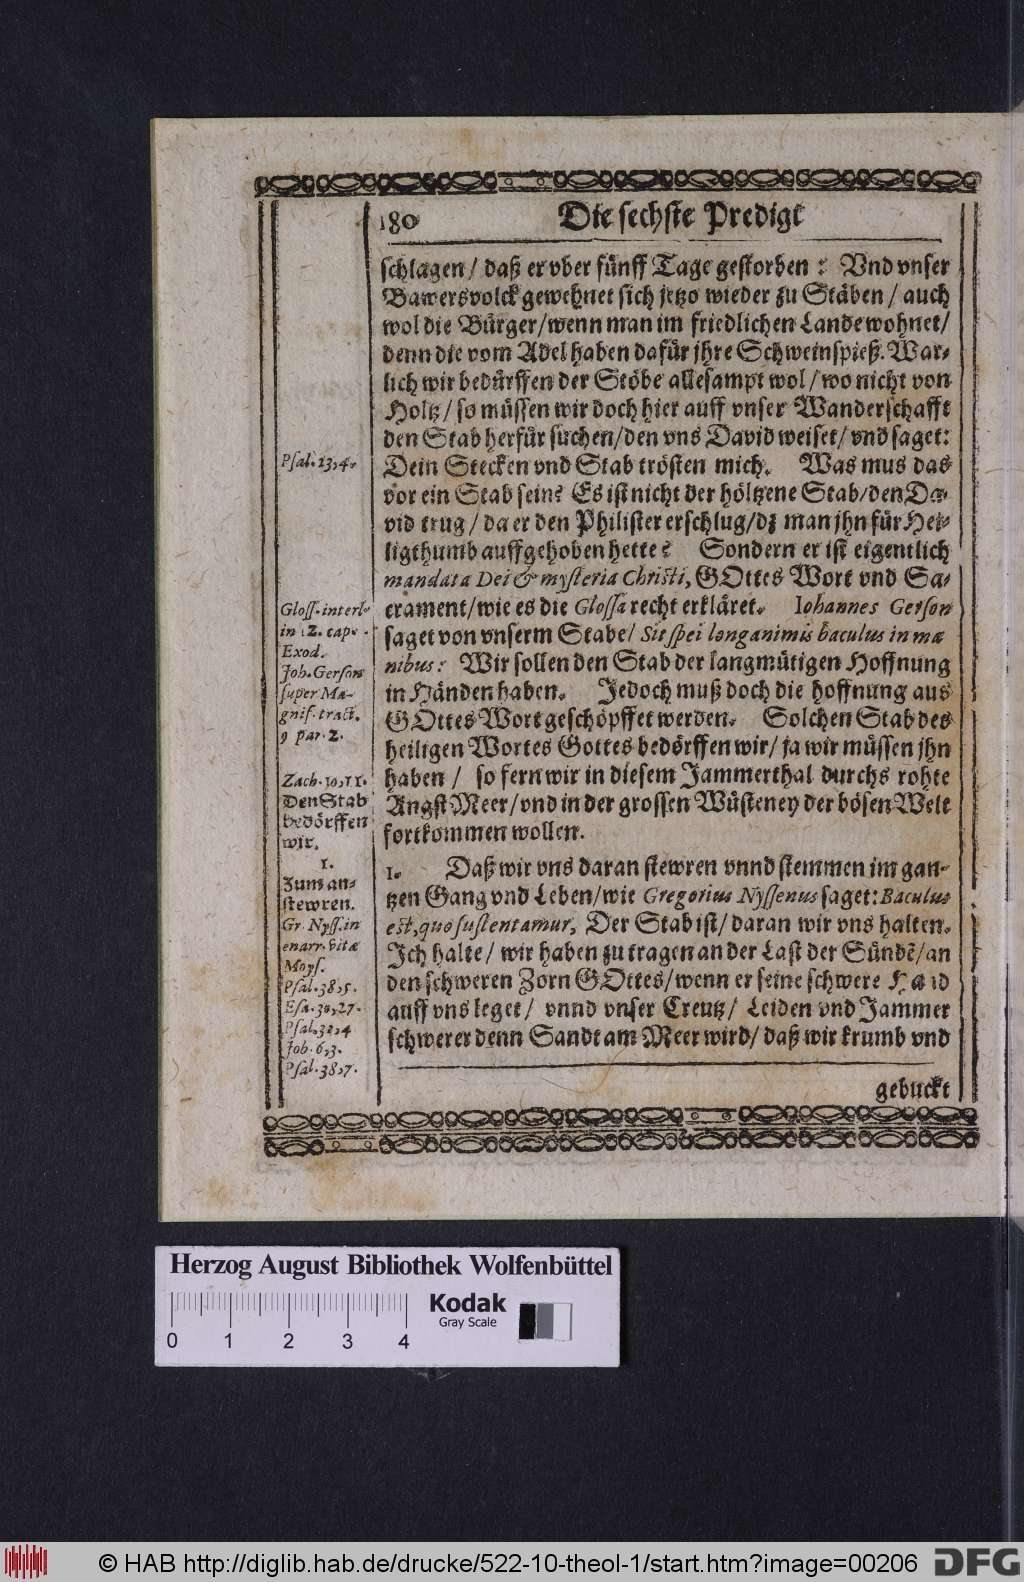 180 Die sechste Predigt
schlagen / daß er vber fünff Tage gestorben : Vnd vnser
Bawersvolck gewehnet sich jetzo wieder zu Stäben / auch
wol die Bürger / wenn man im friedlichen Lande wohnet /
denn die vom Adel haben dafür jhre Schweinspieß. War-
lich wir bedürffen der Stöbe allesampt wol / wo nicht von
Holtz / so müssen wir doch hier auff vnser Wanderschafft
den Stab herfür suchen / den vns David weiset / vnd saget:
Dein Stecken vnd Stab trösten mich. Was mus das
vor ein Stab sein? Es ist nicht der höltzene Stab / den Da-
vid trug / da er den Philister erschlug / dz man jhn für Hei-
ligthumb auffgehoben hette? Sondern er ist eigentlich
mandata Dei & mysteria Christi, GOttes Wort vnd Sa-
crament / wie es die Glossa recht erkläret. Iohannes Gerson
saget von vnserm Stabe / Sit spei longanimis baculus in ma
nibus: Wir sollen den Stab der langmütigen Hoffnung
in Händen haben. Jedoch muß doch die hoffnung aus
GOttes Wort geschöpffet werden. Solchen Stab des
heiligen Wortes Gottes bedörffen wir / ja wir müssen jhn
haben / so fern wir in diesem Jammerthal durchs rohte
Angst Meer / vnd in der grossen Wüsteney der bösen Welt
fortkommen wollen.
1. Daß wir vns daran stewren vnnd stemmen im gan-
tzen Gang vnd Leben / wie Gregorius Nyssenus saget: Baculus
est, quo sustentamur, Der Stab ist / daran wir vns halten.
Ich halte / wir haben zu tragen an der Last der Sündē / an
den schweren Zorn GOttes / wenn er seine schwere Hand
auff vns leget / vnnd vnser Creutz / Leiden vnd Jammer
schwerer denn Sandt am Meer wird / daß wir krumb vnd
gebuckt
Psal. 23,4.
Gloss. interl.
in 12. cap.
Exod.
Joh. Gerson
super Ma-
gnif. tract.
9 par. 2.
Zach. 10,11.
Den Stab
bedörffen
wir.
1.
Zum an-
stewren.
Gr. Nyss. in
enarr. vitæ
Moys.
Psal. 38,5.
Esa. 30,27.
Psal. 32,4
Job. 6,3.
Psal. 38,7.
Herzog August Bibliothek Wolfenbüttel
0 1 2 3 4
Kodak
Gray Scale
© HAB http://diglib.hab.de/drucke/522-10-theol-1/start.htm?image=00206
DFG